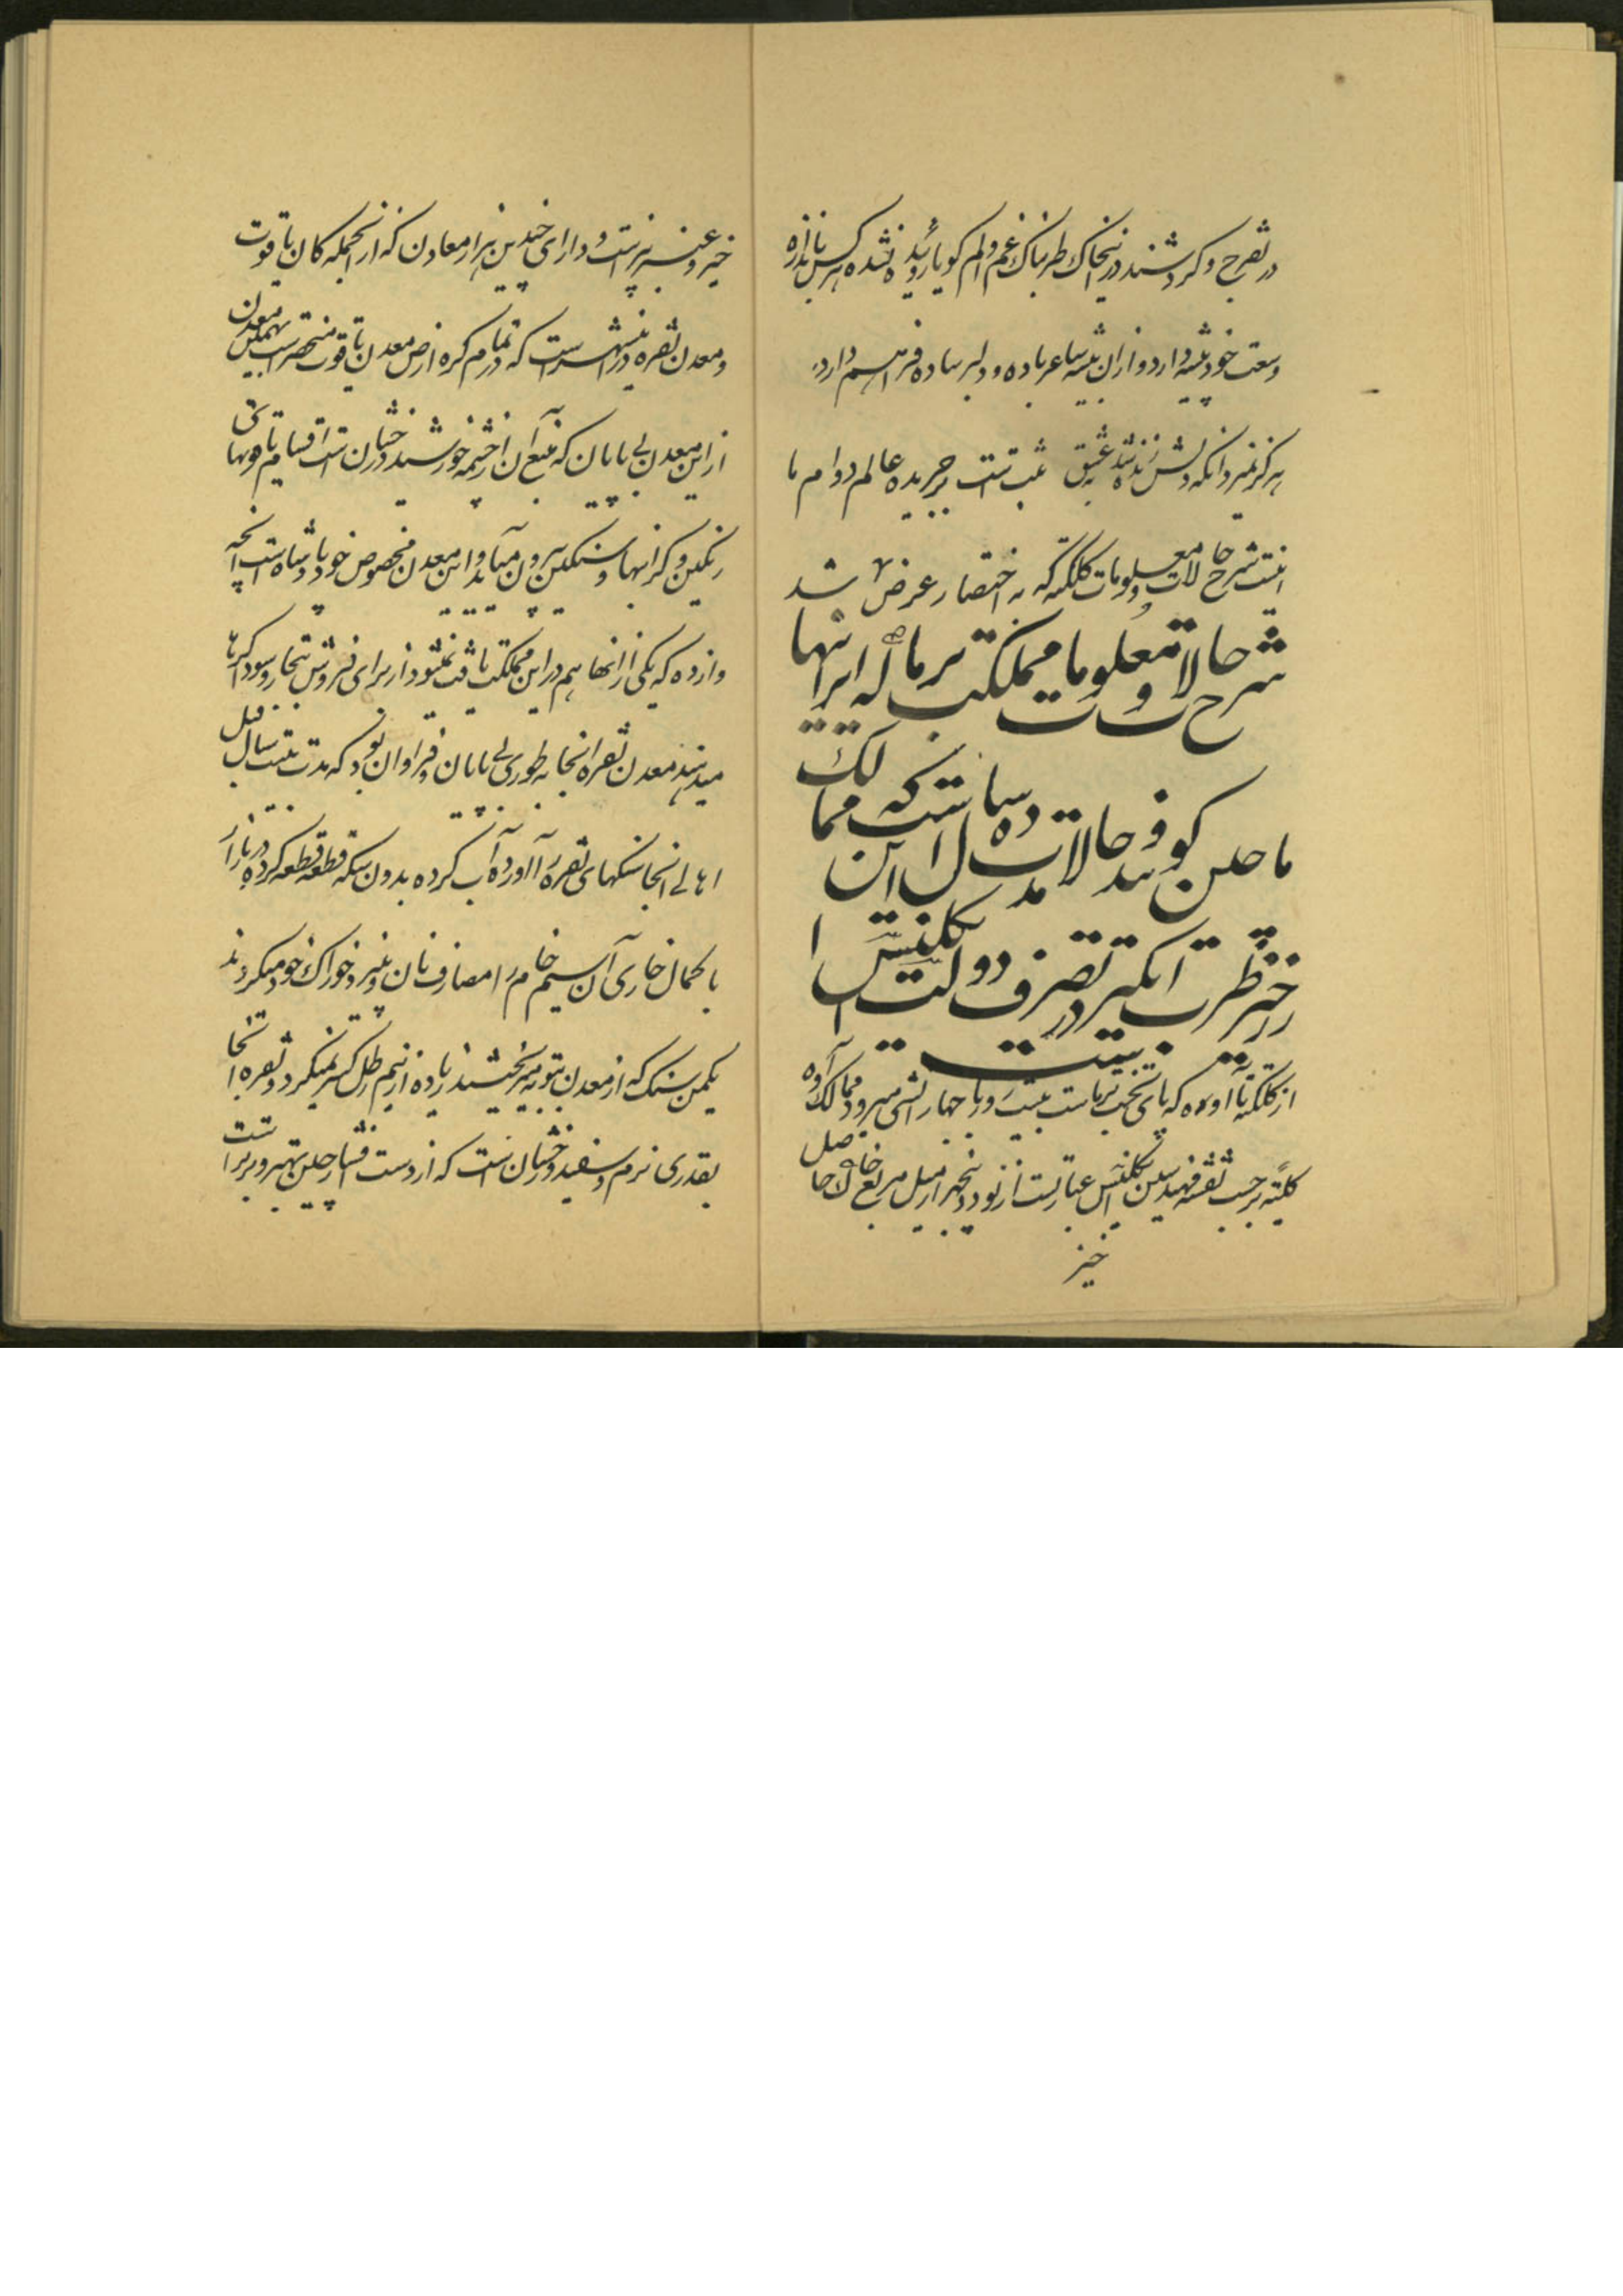 در تفرج و گردشند در این خاک طربناک غم و الم گویا روئیده نشده هر کس باندازه
وسعت خود پیشه دارد و از آن پیشه ساغر باده و دلبر ساده فراهم دارد
هرگز نمیرد آنکه دلش زنده شد بعشق ثبت است بر جریده عالم دوام ما
اینست شرح حالات و معلومات کلکته که به اختصار عرض شد
شرح حالات و معلومات مملکت برما که ایرانیها
ماچین گویند و حالات ده سال است که ممالک
زرخیز طرب انگیز در تصرف دولت انگلیس
است
از کلکته تا آوه که پای تخت برماست بیست و با جهاز آتشی میرود ممالک آوه
کلیته بر حسب نقشه مهندسین انگلیس عبارتست از نود و پنجهزار میل مربع خاک حاصل
خیز
خیز و عنبر بیز است و دارای چندین هزار معادن که از آنجمله کان یاقوت
و معدن نقره در این شهر است که در تمام کره ارض معدن یاقوت منحصر است بهمین معدن
از این معدن بی پایان که منبع آن از چشمه خورشید درخشان است اقسام یاقوتهای
رنگین و گرانبها و سنگین بیرون میآید و این معدن مخصوص خود پادشاه است آنچه
وازده که یکی از آنها هم در این مملکت یافت نمیشود از برای فروش بتجار و سوداگرها
میدهند معدن نقره آنجا به طوری بی پایان و فراوان بود که مدت بیست سال قبل
اهالی آنجا سنگهای نقره را آورده آب کرده بدون سکه قطعه قطعه کرده در بازار
بکمال خاری آن سیم خام را مصارف نان و پنیر و خوراک خود میکردند
یکمن سنگ که از معدن ببوته میریختند زیاده از نیم رطل کسر نمیکرد و نقره آنجا
بقدری نرم و سفید و درخشان است که از دست فشار چین بهتر و برتر است